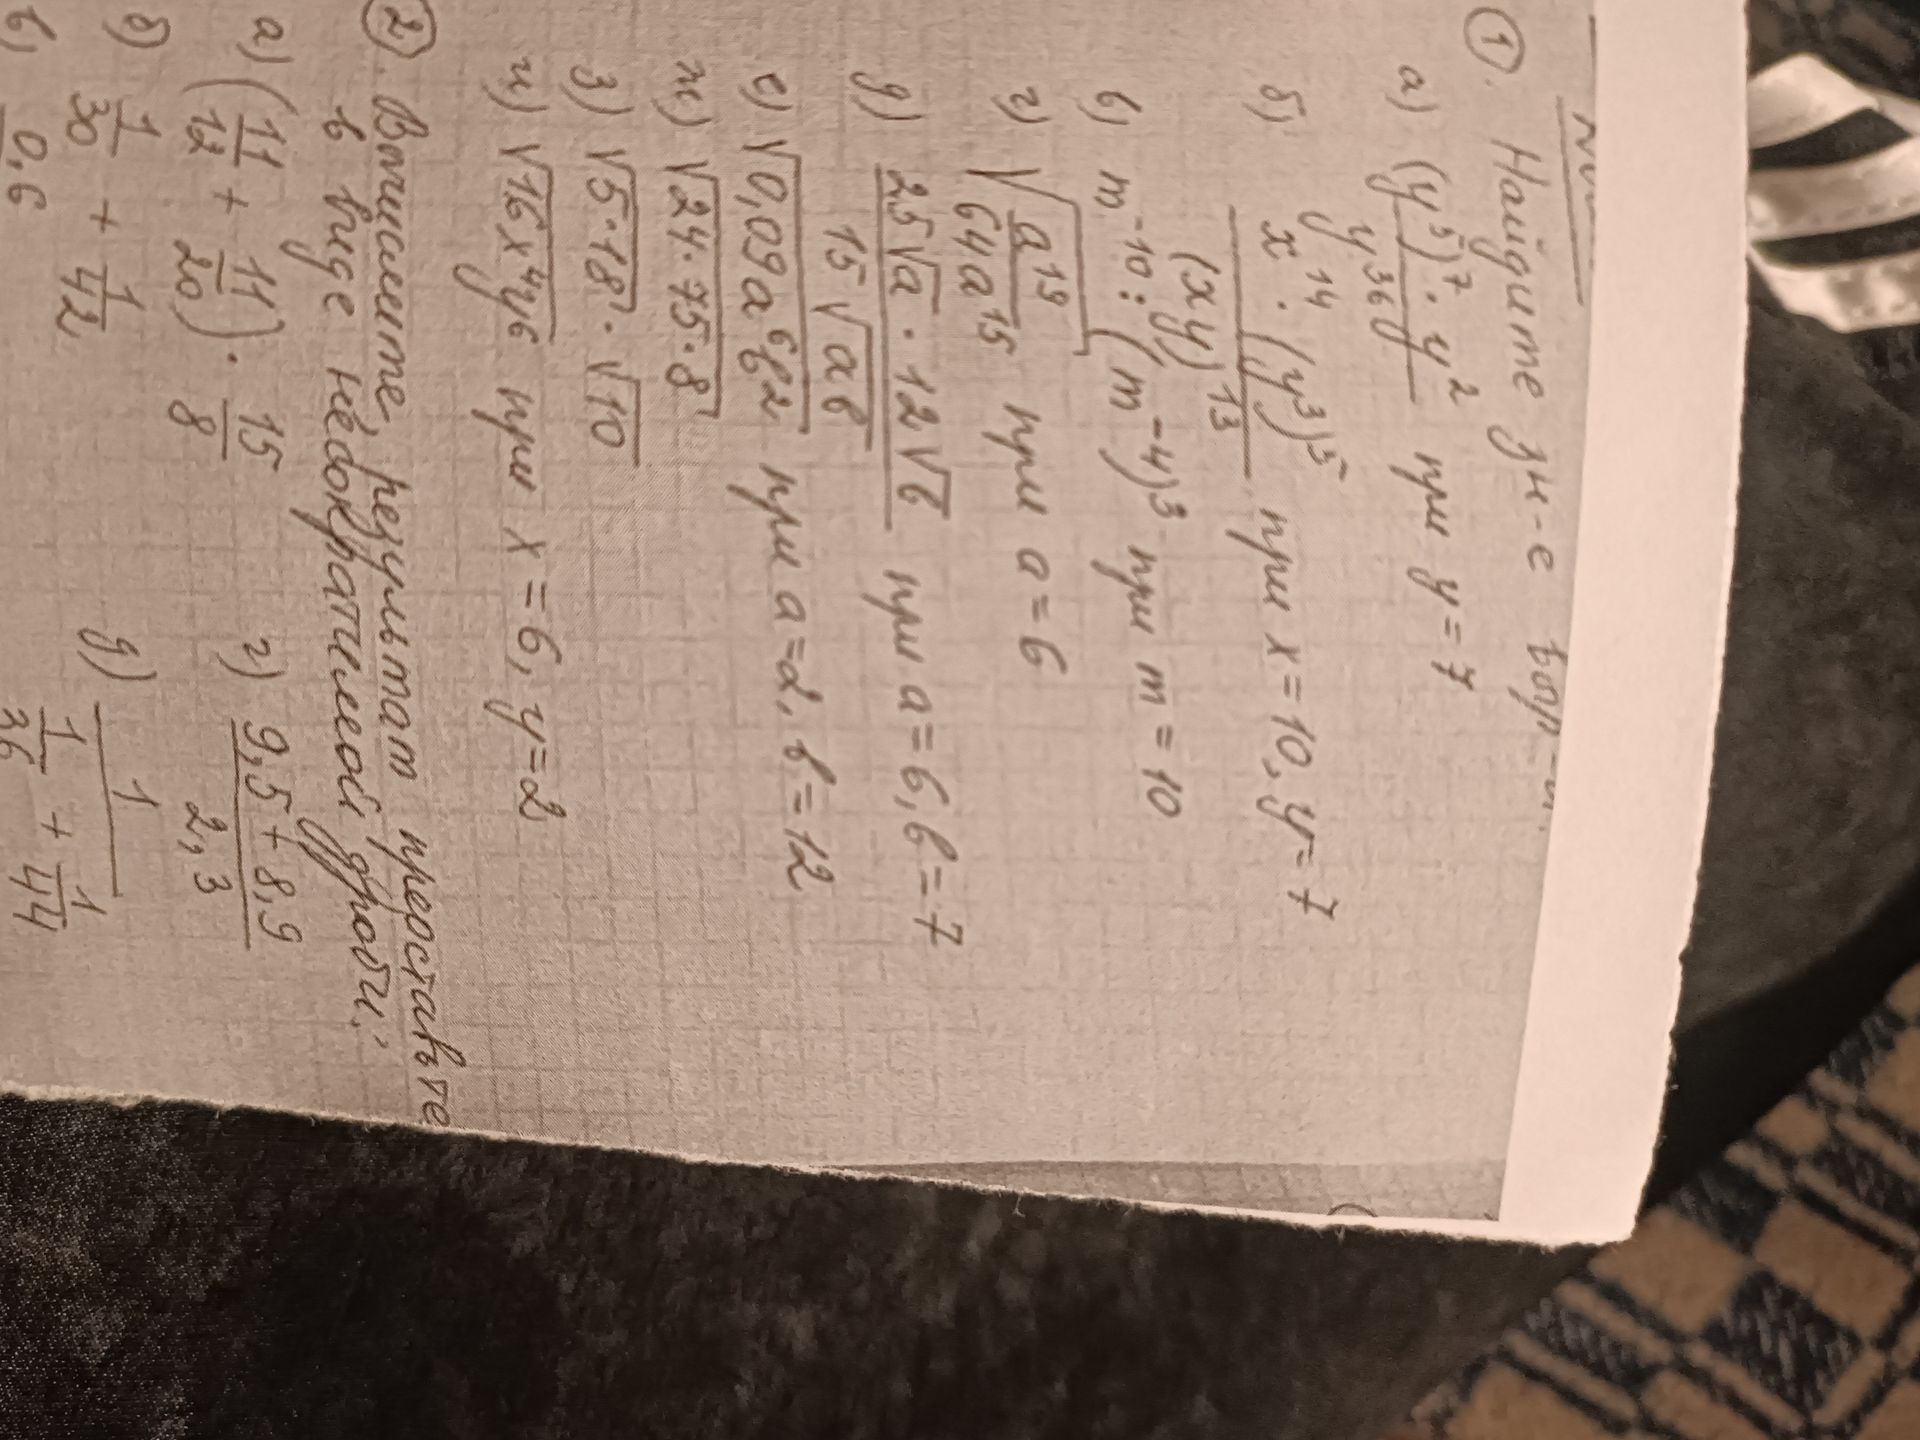 ① Найдите зн-е выр-я.
а) (y⁵)⁷ · y² / y³⁶ при y = 7
б) x¹⁴ · (y³)⁵ / (xy)¹³ при x = 10, y = 7
в) m⁻¹⁰ : (m⁻⁴)³ при m = 10
г) √(a¹⁹ / 64a¹⁵) при a = 6
д) 25√a · 12√b / 15√ab при a = 6, b = 7
е) √0,09a⁶b² при a = 2, b = 12
ж) √24 · 75 · 8
з) √5 · 18 · √10
и) √16x⁴y⁶ при x = 6, y = 2
②. Вычислите, результат представьте
в виде несократимой дроби:
а) (11/12 + 11/20) · 15/8
г) 9,5 + 8,9 / 2,3
б) 1/30 + 1/42
д) 1 / 1/36 + 1/44
в) 0,6